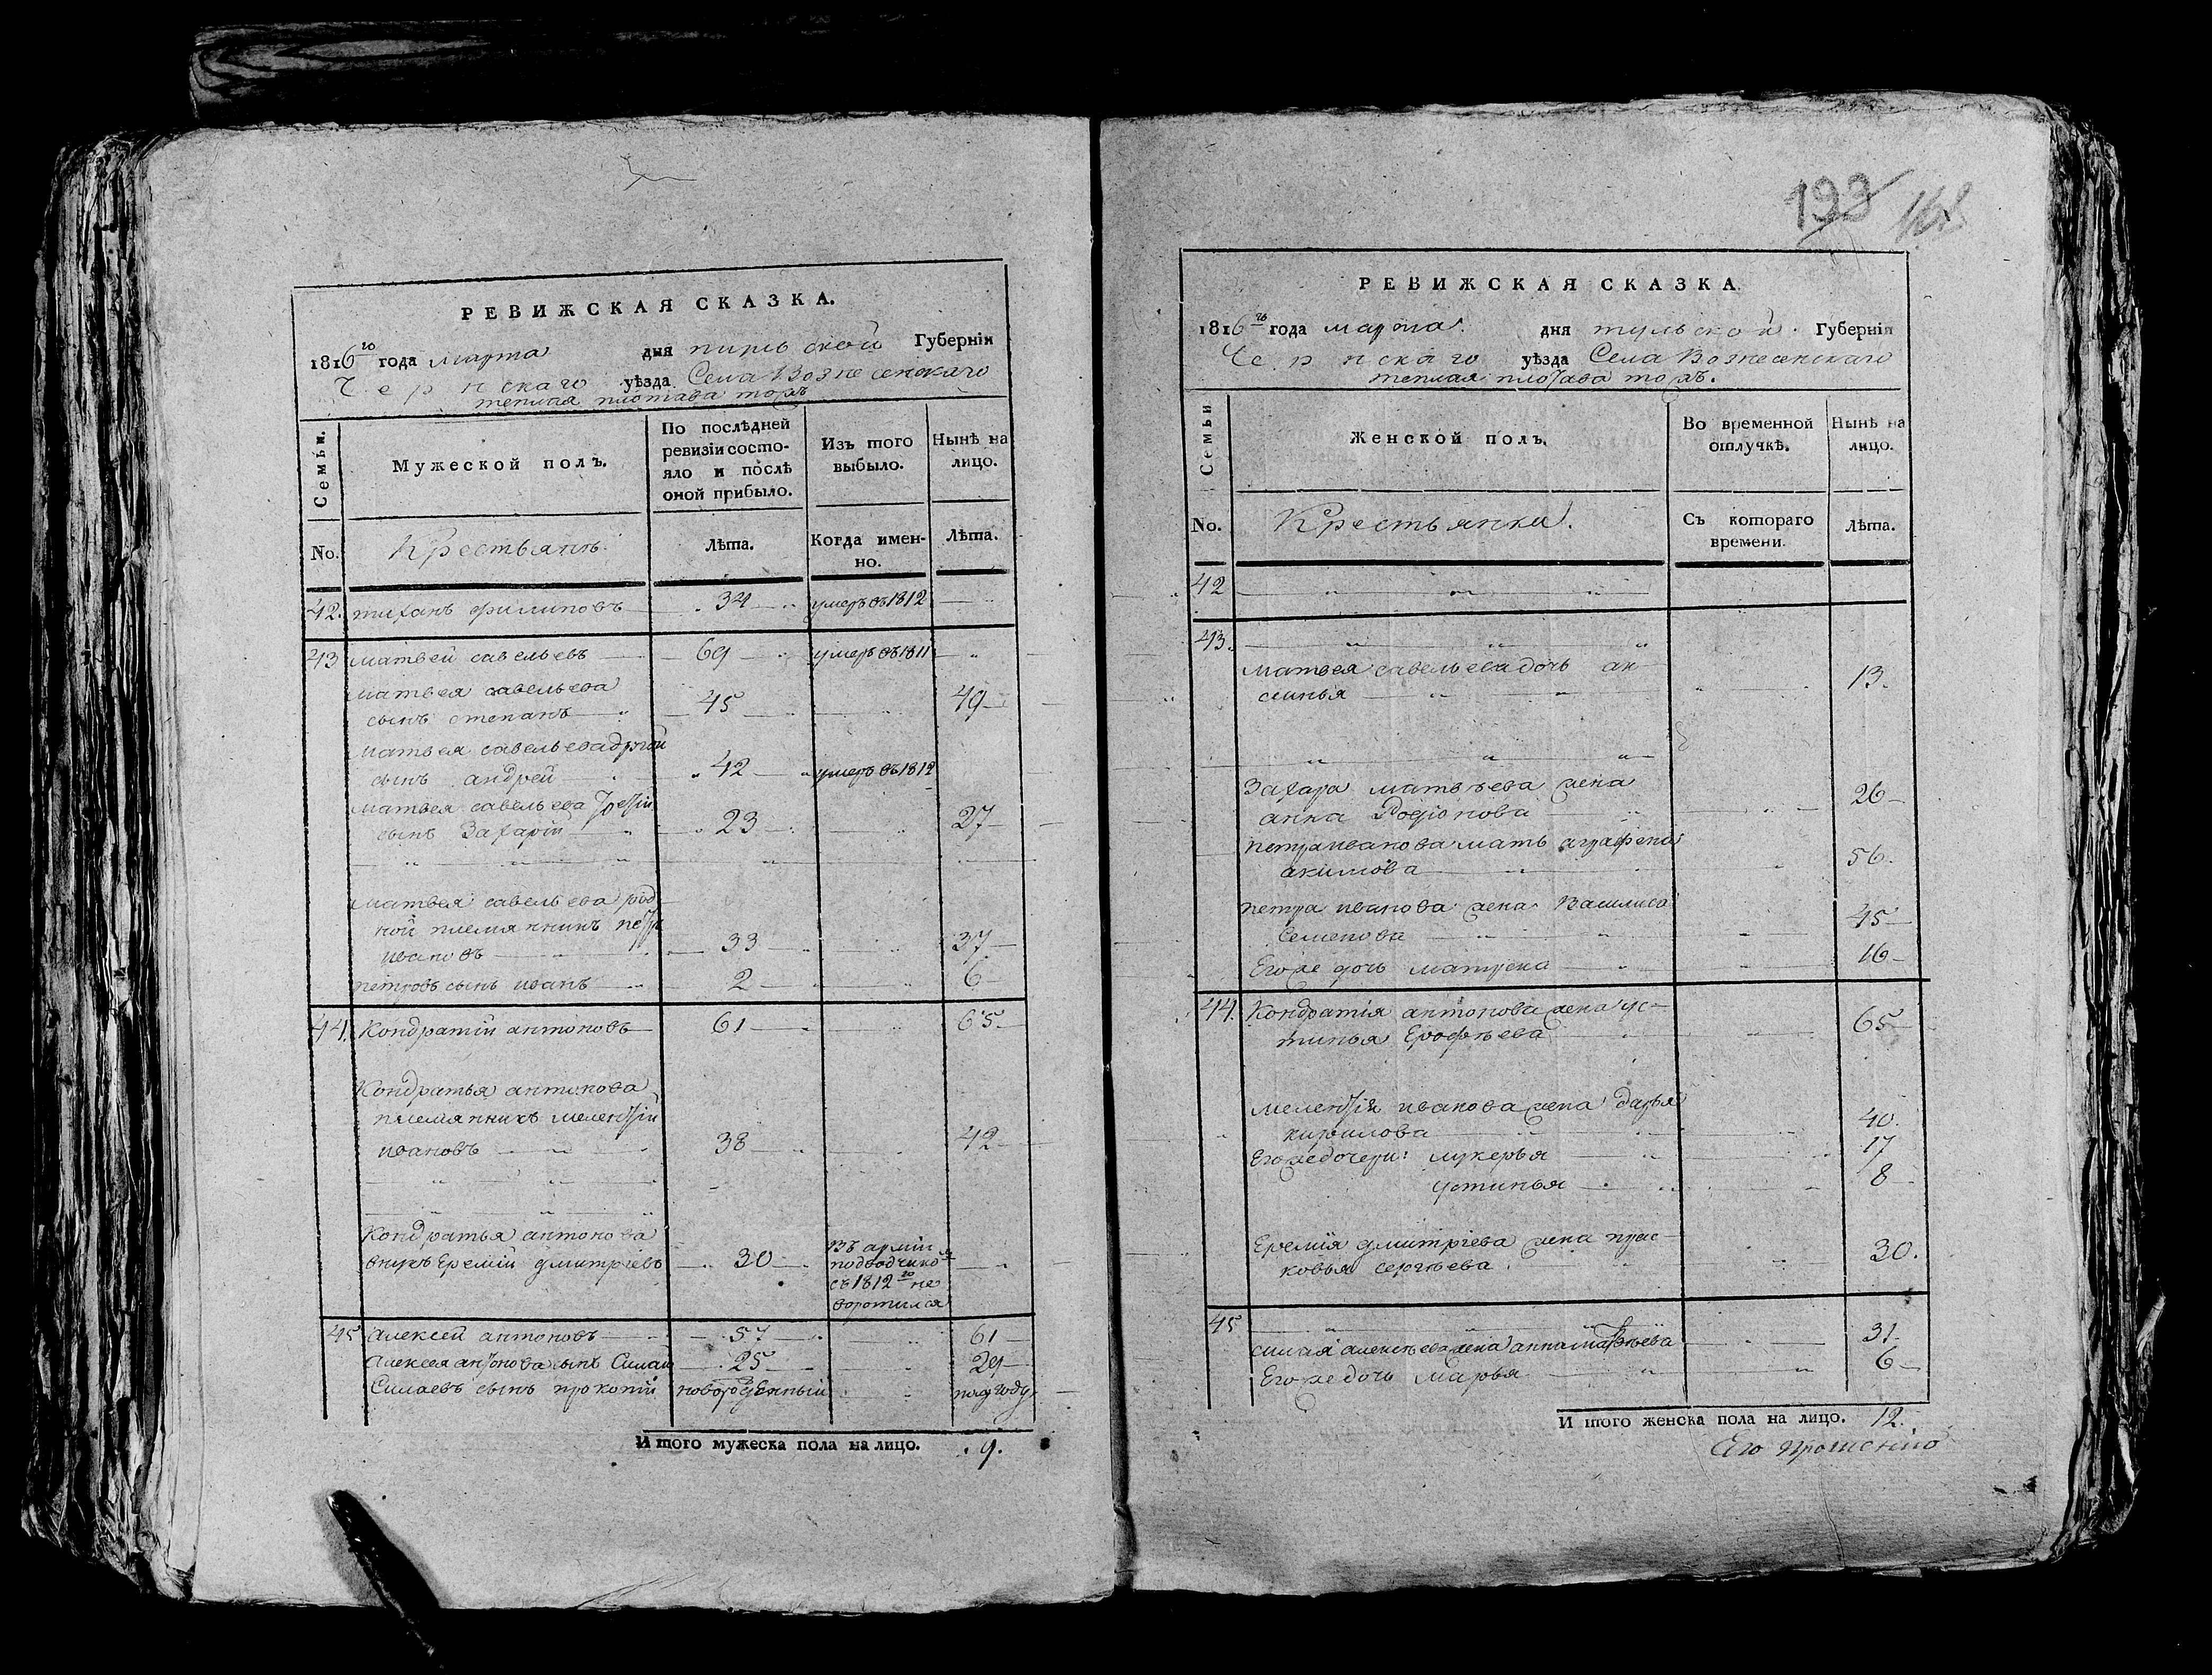 РЕВИЖСКАЯ СКАЗКА.
1816го года марта дня тульской Губернии
Чернскаго уѣзда Села Вознесенскаго
теплая тожъ
Семьи.
Мужеской полъ.
По послѣдней ревизіи состо-
яло и послѣ
оной прибыло.
Изъ того
выбыло.
Нынѣ на
лицо.
No.
Крестьянъ.
Лѣта.
Когда имен-
но.
Лѣта.
42. тиханъ филиповъ 34 умеръ въ 1812
43 матвей савельевъ 69 умеръ въ 1811
матвея савельева
сынъ степанъ 45 49
матвея савельева другой
сынъ андрей 42 умеръ въ 1812
матвея савельева третій
сынъ Захарій 23 27
матвея савельева род
ной племянникъ петръ
ивановъ 33 37
петровъ сынъ иванъ 2 6
44. Кондратій антоновъ 61 65
Кондратья антонова
племянникъ мелентій
ивановъ 38 42
Кондратья антонова
внукъ Еремій дмитріевъ 30
Въ арміи
съ 1812го не
воротился
45 алексей антоновъ 57 61
алексея антонова сынъ Силай 25 29
Силаевъ сынъ прокопій новорожденный году
Итого мужеска пола на лицо. 9.
193 162
РЕВИЖСКАЯ СКАЗКА
1816го года марта. дня тульской Губернія
Чернскаго уѣзда Села Вознесенскаго
теплая тожъ.
Семьи
Женской полъ.
Во временной
отлучкѣ.
Нынѣ на
лицо.
No.
Крестьянки.
Съ котораго
времени.
Лѣта.
42
43.
матвея савельева дочь ак
синья 13.
Захара матвѣева жена
анна Родіонова 26
петра иванова мать аграфена
акимова 56.
петра иванова жена Василиса
Семенова 45
Его же дочь матрена 16
44. Кондратія антонова жена ус-
тинья Ерофѣева 65
мелентія иванова жена дарья
кирилова 40.
Его же дочери: лукерья 17
устинья 8
Еремія дмитріева жена прас-
ковья сергѣева 30.
45
силая алексѣева жена анна матвѣева 31
Его же дочь марья 6
Итого женска пола на лицо. 12.
Его прошенію